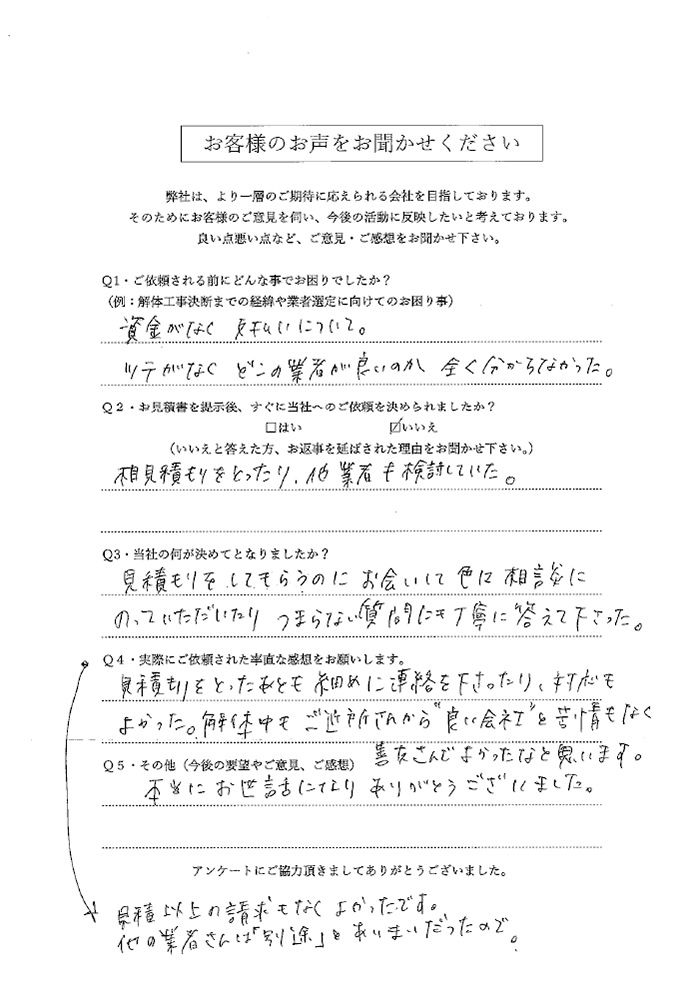 お客様のお声をお聞かせください
弊社は、より一層のご期待に応えられる会社を目指しております。
そのためにお客様のご意見を伺い、今後の活動に反映したいと考えております。
良い点悪い点など、ご意見・ご感想をお聞かせ下さい。
Q1・ご依頼される前にどんな事でお困りでしたか？
（例：解体工事決断までの経緯や業者選定に向けてのお困り事）
資金がなく 支払いについて。
ツテがなく どこの業者が良いのか 全く分からなかった。
Q2・お見積書を提示後、すぐに当社へのご依頼を決められましたか？
□はい ☑いいえ
（いいえと答えた方、お返事を延ばされた理由をお聞かせ下さい。）
相見積もりをとったり、他業者も検討していた。
Q3・当社の何が決めてとなりましたか？
見積もりをしてもらうのに お会いして 色々 相談に
のっていただいたり つまらない質問にも丁寧に答えて下さった。
Q4・実際にご依頼された率直な感想をお願いします。
見積もりをとったあとも 細めに連絡を下さったり、対応も
よかった。解体中も ご近所さんから"良い会社"と苦情もなく
善友さんでよかったなと思います。
Q5・その他（今後の要望やご意見、ご感想）
本当にお世話になり ありがとうございました。
アンケートにご協力頂きましてありがとうございました。
見積以上の請求もなく よかったです。
他の業者さんは「別途」とあいまいだったので。